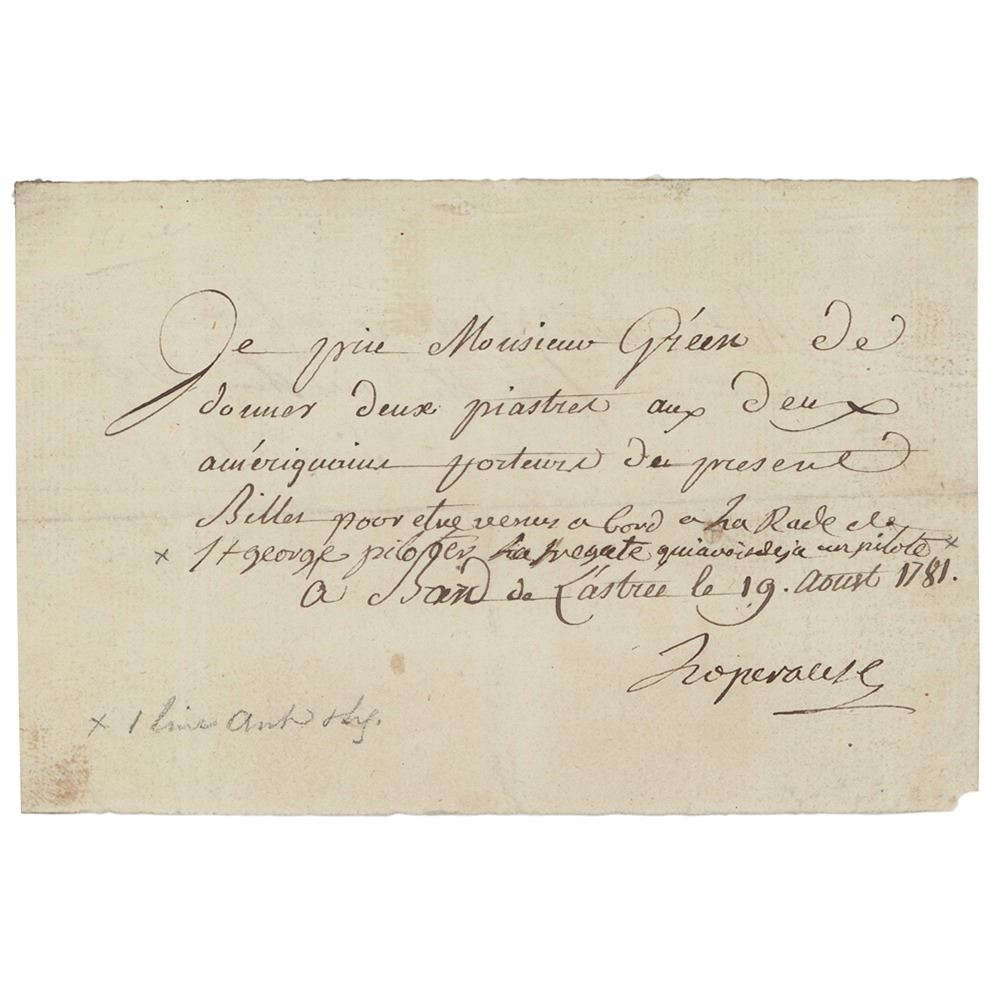 Je prie Monsieur Gréen de
donner deux piastres aux deux
amériquains porteurs du present
Billet pour etre venus a bord a La Rade de
x St george piloter La fregate qui avoit deja un pilote x
a Bord de L'astrée le 19. Aoust 1781.
Laperouse
x 1 line